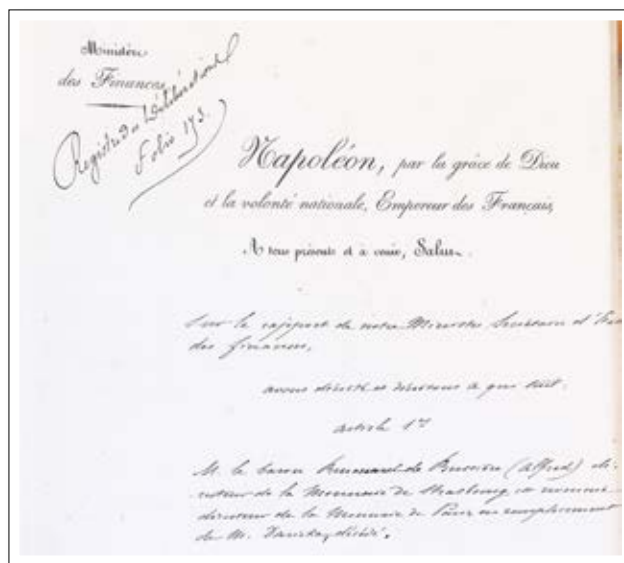 Ministère
des Finances
Registre des Délibérations
Folio 173.
Napoléon, par la grâce de Dieu
et la volonté nationale, Empereur des Français,
A tous présents et à venir, Salut.
Sur le rapport de notre Ministre Secrétaire d'Etat
des finances,
avons décrété et décrétons ce qui suit.
article 1er
M. le baron Renouard de Bussierre (Alfred) di-
recteur de la Monnaie de Strasbourg est nommé
directeur de la Monnaie de Paris en remplacement
de M. décédé.